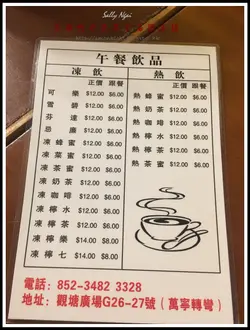 Sally Ngai
午餐飲品
凍飲 熱飲
正價 跟餐 正價 跟餐
可樂 $12.00 $6.00 熱蜂蜜 $12.00 $6.00
雪碧 $12.00 $6.00 熱奶茶 $12.00 $6.00
芬達 $12.00 $6.00 熱咖啡 $12.00 $6.00
忌廉 $12.00 $6.00 熱檸水 $12.00 $6.00
凍蜂蜜 $12.00 $6.00 熱檸茶 $12.00 $6.00
凍菓蜜 $12.00 $6.00 熱檸蜜 $12.00 $6.00
凍茶蜜 $12.00 $6.00 熱茶蜜 $12.00 $6.00
凍奶茶 $12.00 $6.00
凍咖啡 $12.00 $6.00
凍檸水 $12.00 $6.00
凍檸茶 $12.00 $6.00
凍檸樂 $14.00 $8.00
凍檸七 $14.00 $8.00
電話：852-3482 3328
地址：觀塘廣場G26-27號（萬寧轉彎）